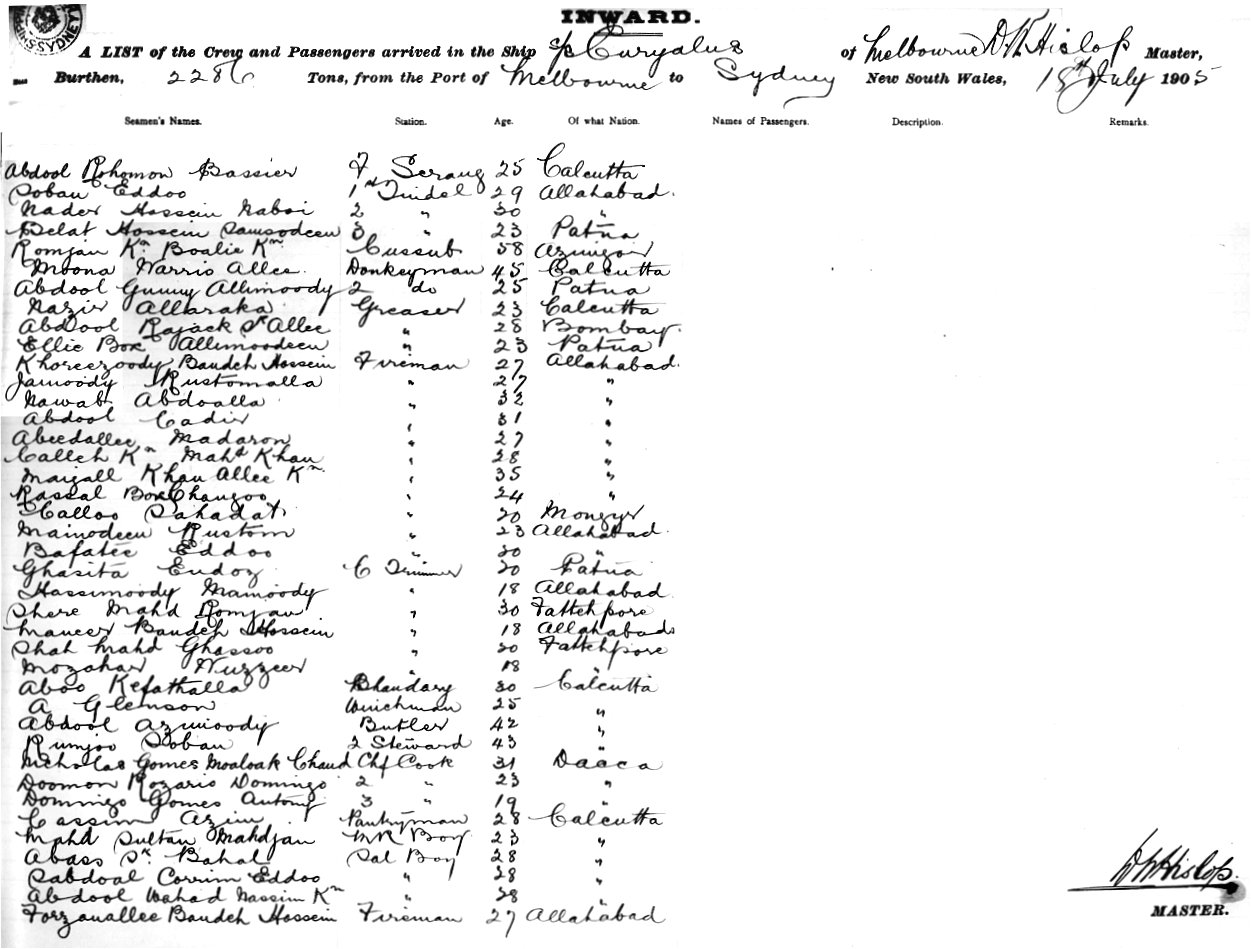 INWARD.
A LIST of the Crew and Passengers arrived in the Ship S/S Euryalus of Melbourne D W Hislop Master,
Burthen, 2286 Tons, from the Port of Melbourne to Sydney New South Wales, 18th July 1905
Seamen's Names. Station. Age. Of what Nation. Names of Passengers. Description. Remarks.
Abdool Rohomon Bassier F Serang 25 Calcutta
Soban Eddoo 1st Tindel 29 Allahabad.
Nader Hossein Naboi 2 " 30 "
Belat Hossein Samsodeen 3 " 23 Patna
Romjan Kn. Boalie Kn Cussub 58
Moona Warris Allee. Donkeyman 45 Calcutta
Abdool Gunny Allimoody 2 do 25 Patna
Nazir Allaraka Greaser 23 Calcutta
Abdool Rajack Sk Allee " 28 Bombay.
Ellie Box Allimoodeen " 23 Patna
Khoreezoody Baudeh Hossein Fireman 27 Allahabad.
Jamoody Rustomalla " 27 "
Nawab Abdoalla " 32 "
Abdool Cadir " 31 "
Abeedallee Madaron " 27 "
Calleh Kn Mahd Khan " 28 "
Maigall Khan Allee Kn " 35 "
Rassal Box Changoo " 24 "
Calloo Sahadat " 20 Mongyr
Mainodeen Rustom " 23 Allahabad.
Bafatee Eddoo " 30 "
Ghasita Eudoz C Trimmer 20 Patna
Hassimoody Mamoody " 18 Allahabad
Shere Mahd Romjan " 30 Fattehpore
Maneer Baudeh Hossein " 18 Allahabad
Shah Mahd Ghassoo " 20 Fattehpore
Mozahar Nuzzeer " 18 "
Aboo Kefathalla Bhandary 30 Calcutta
A Glenson Winchman 25 "
Abdool Azimoody Butler 42 "
Rumjoo Soban 2 Steward 43 "
Nicholas Gomes Moaloak Chaud Chf Cook 31 Dacca
Doomon Rozario Domingo 2 " 23 "
Domingo Gomes Antony 3 " 19 "
Cassim Azim Pantryman 28 Calcutta
Mahd Sultan Mahdjan MR Boy 23 "
Abass Sk. Bahal Sal Boy 28 "
Sabdoal Corrim Eddoo " 28 "
Abdool Wahad Nassim Kn " 28 "
Forzauallee Baudeh Hossein Fireman 27 Allahabad
D W Hislop.
MASTER.